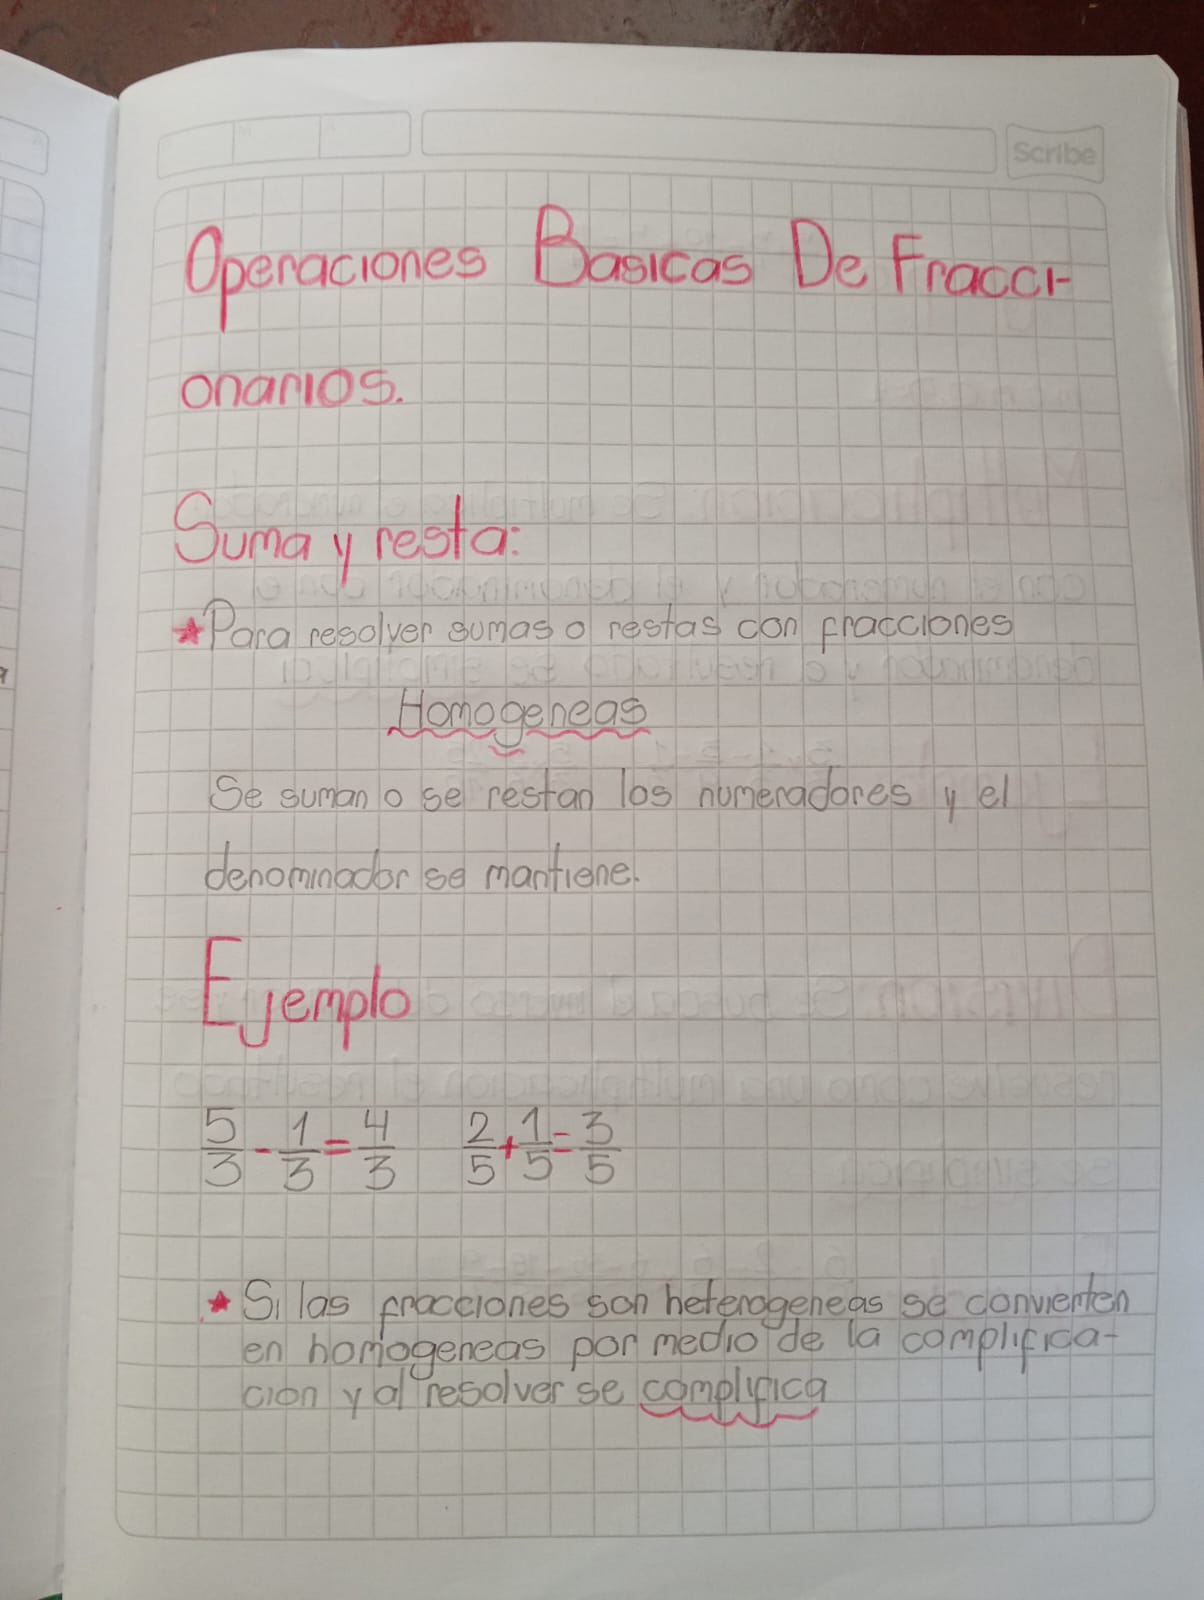 Scribe
Operaciones Basicas De Fracci-
onarios.
Suma y resta:
Para resolver sumas o restas con fracciones
Homogeneas
Se suman o se restan los numeradores y el
denominador se mantiene.
Ejemplo
5/3 - 1/3 = 4/3 2/5 + 1/5 = 3/5
Si las fracciones son heterogeneas se convierten
en homogeneas por medio de la complifica-
cion y al resolver se complifica